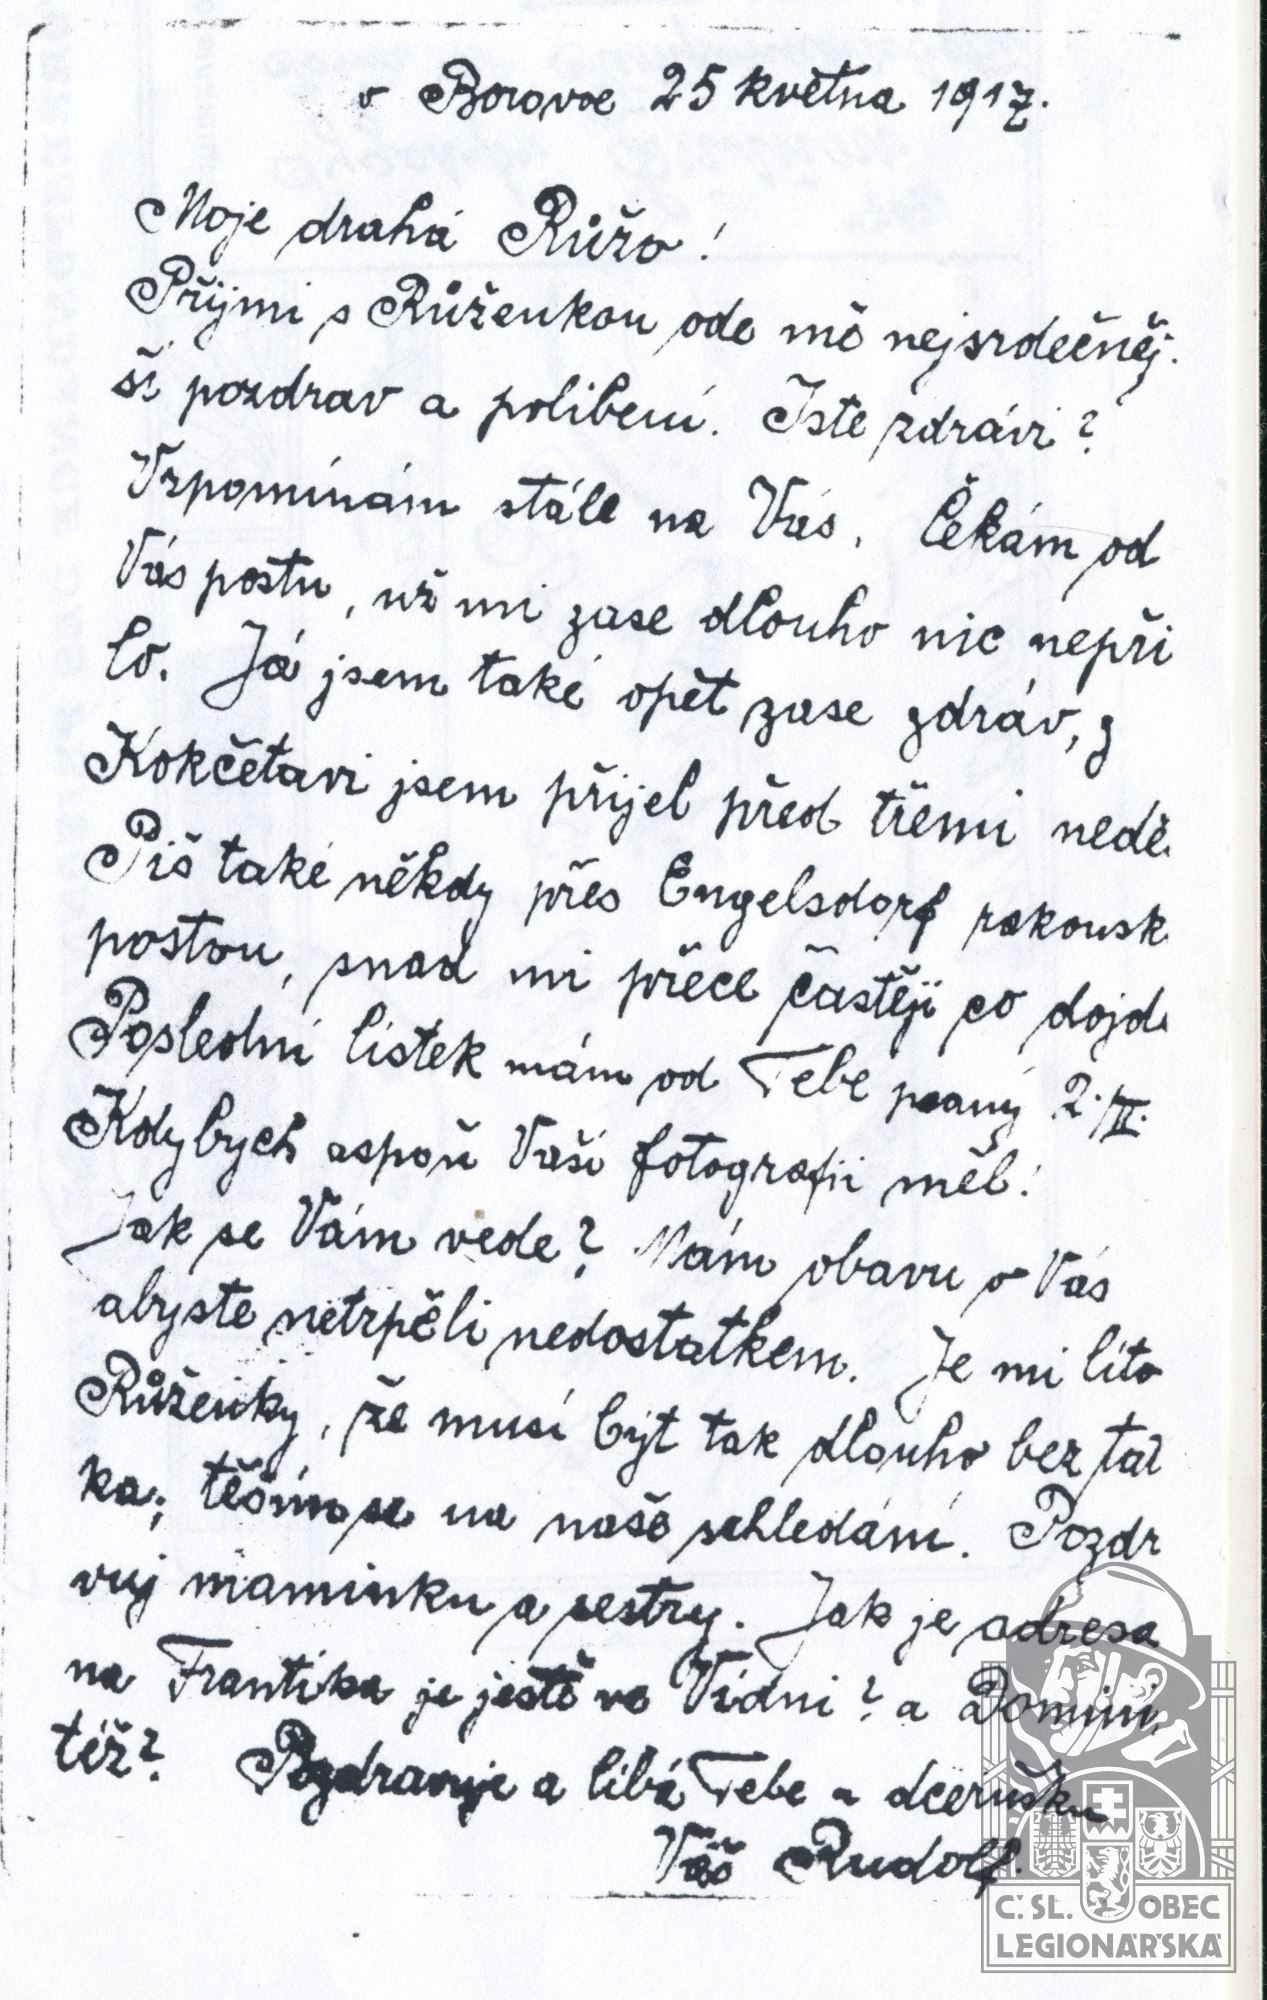 v Borovoe 25 května 1917.
Moje drahá Růžo!
Přijmi s Růženkou ode mě nejsrdečněj-
ší pozdrav a políbení. Jste zdrávi?
Vzpomínám stále na Vás. Čekám od
Vás poštu, už mi zase dlouho nic nepři
lo. Já jsem také opět zase zdráv, z
Kokčetavi jsem přijel před třemi nedě
Piš také někdy přes Engelsdorf rakousk
poštou, snad mi přece častěji co dojd
Poslední lístek mám od Tebe psaný 2./II.
Kdybych aspoň Vaši fotografii měl!
Jak se Vám vede? Mám obavu o Vás
abyste netrpěli nedostatkem. Je mi líto
Růženky, že musí být tak dlouho bez tat
ka; těším se na naše shledání. Pozdr
vuj maminku a sestry. Jak je adresa
na Frantíka je ještě ve Vídni? a Domini
též? Pozdravuje a líbá Tebe a dcerušku
Váš Rudolf.
Č. SL. OBEC
LEGIONÁŘSKÁ